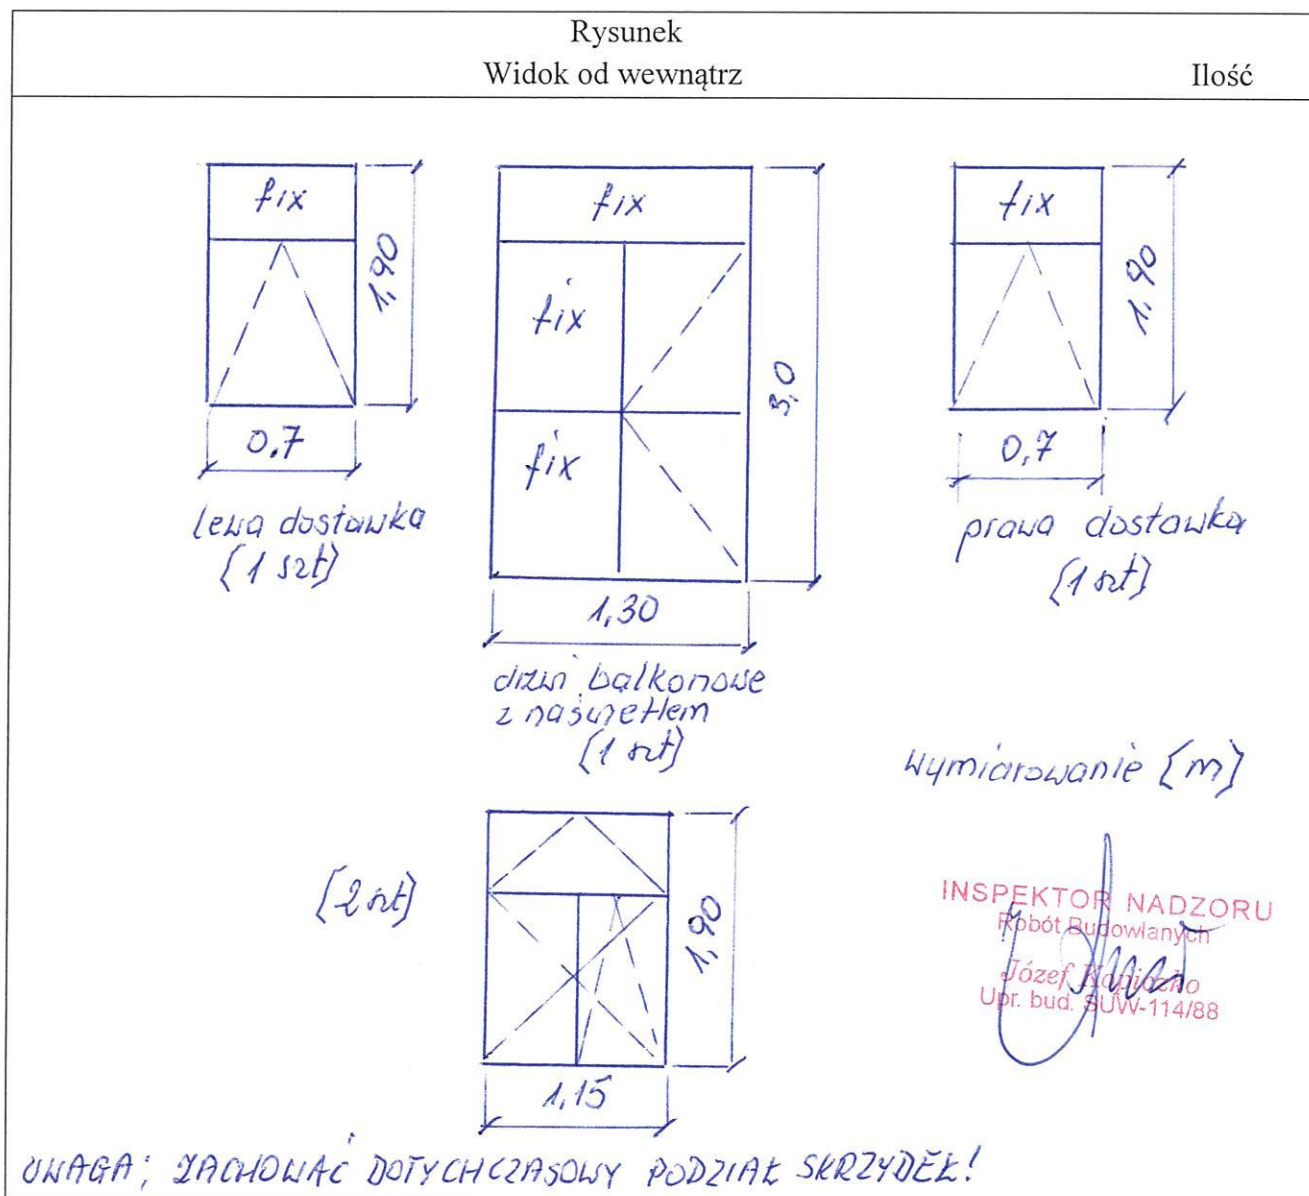 Rysunek
Widok od wewnątrz
Ilość
fix
1,90
0,7
lewa dostawka
(1 szt)
fix
fix
fix
3,0
1,30
drzwi balkonowe
z naświetlem
(1 szt)
fix
1,90
0,7
prawa dostawka
(1 szt)
wymiarowanie (m)
(2 szt)
1,90
1,15
INSPEKTOR NADZORU
Robót Budowlanych
Józef Kopiczko
Upr. bud. SUW-114/88
UWAGA; ZACHOWAĆ DOTYCHCZASOWY PODZIAŁ SKRZYDEŁ!